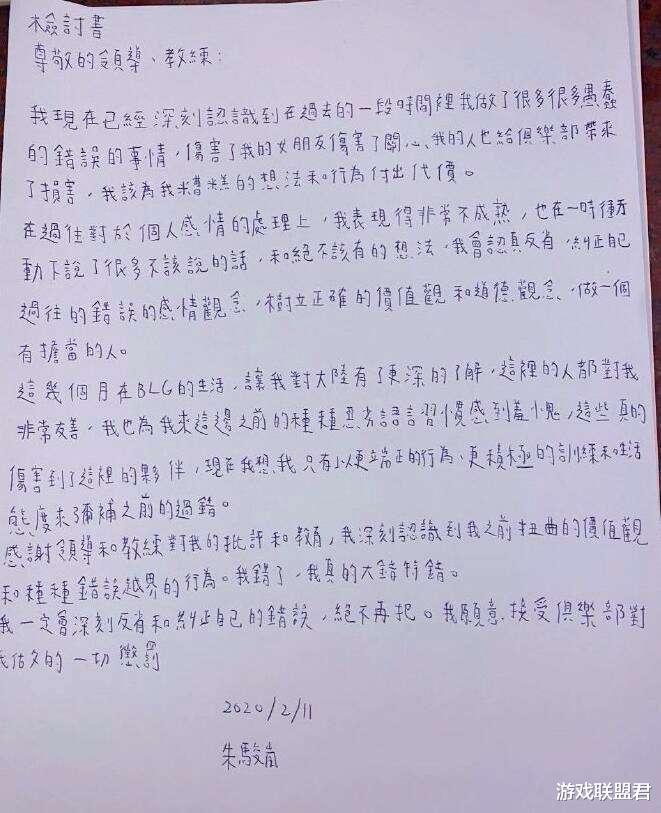 檢討書
尊敬的領導、教練:
我現在已經深刻認識到在過去的一段時間裡我做了很多很多愚蠢
的錯誤的事情,傷害了我的女朋友傷害了關心我的人也給俱樂部帶來
了損害,我該為我糟糕的想法和行為付出代價。
在過往對於個人感情的處理上,我表現得非常不成熟,也在一時衝
動下說了很多不該說的話,和絕不該有的想法,我會認真反省,糾正自己
過往的錯誤的感情觀念,樹立正確的價值觀和道德觀念,做一個
有擔當的人。
這幾個月在BLG的生活,讓我對大陸有了更深的了解,這裡的人都對我
非常友善,我也為我來這邊之前的種種惡劣語言習慣感到羞愧,這些真的
傷害到了這裡的夥伴,現在我想,我只有以更端正的行為、更積極的訓練和生活
態度來彌補之前的過錯。
感謝領導和教練對我的批評和教育,我深刻認識到我之前扭曲的價值觀
和種種錯誤越界的行為。我錯了,我真的大錯特錯。
我一定會深刻反省和糾正自己的錯誤,絕不再犯。我願意接受俱樂部對
我做的一切懲罰
2020/2/11
朱駿嵐
游戏联盟君